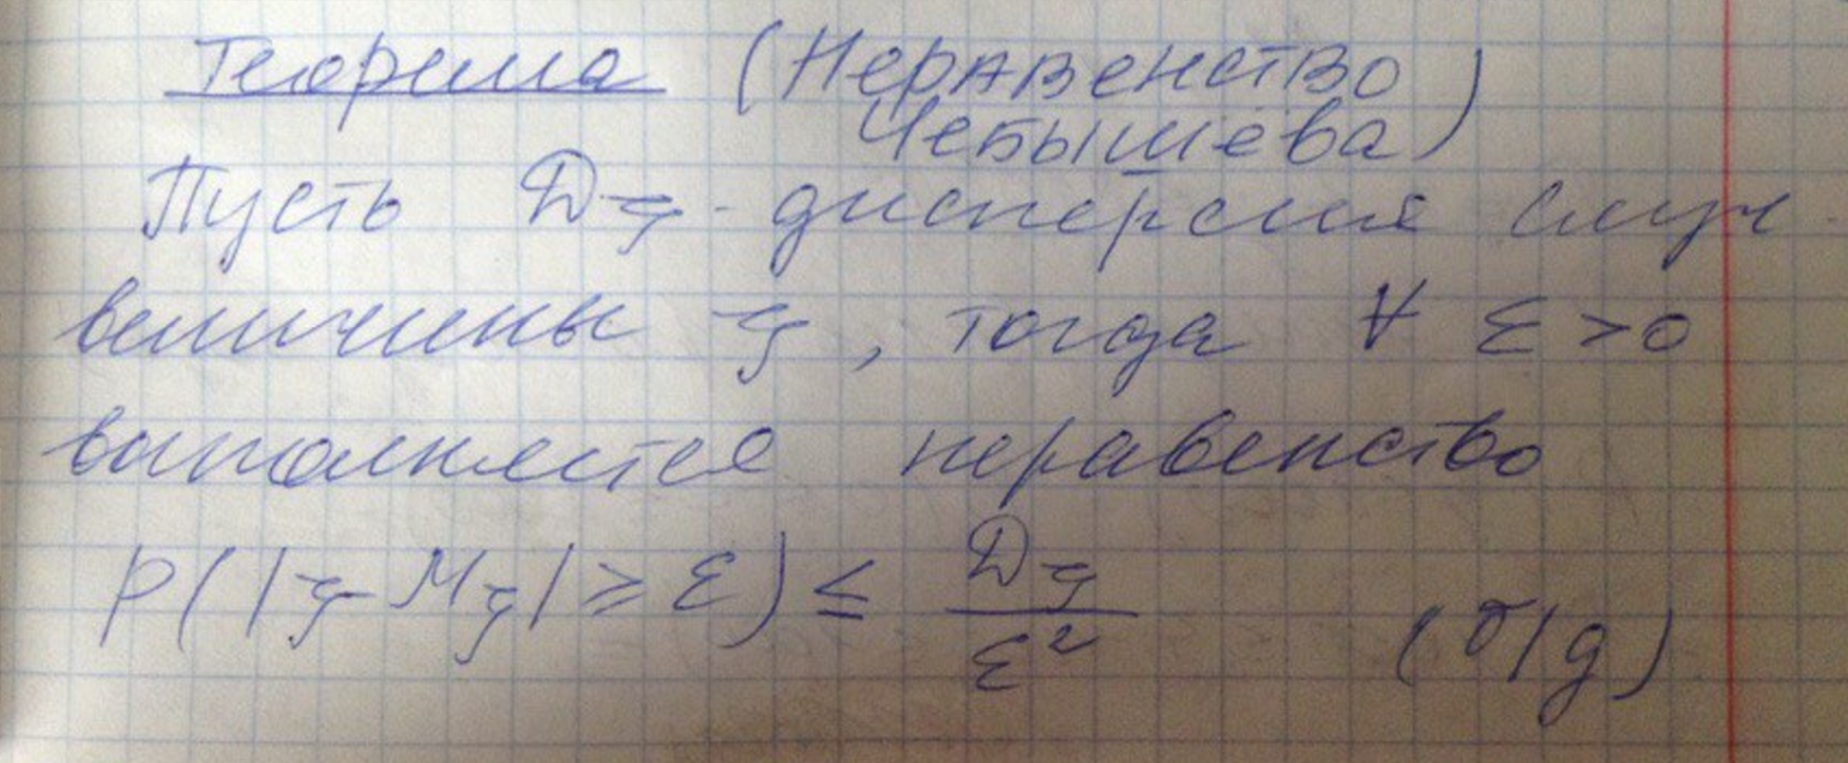 Теорема (Неравенство
Чебышева)
Пусть Dξ - дисперсия случ
величины ξ, тогда ∀ ε > 0
выполняется неравенство
P(|ξ - Mξ| ≥ ε) ≤ Dξ / ε² (б/д)